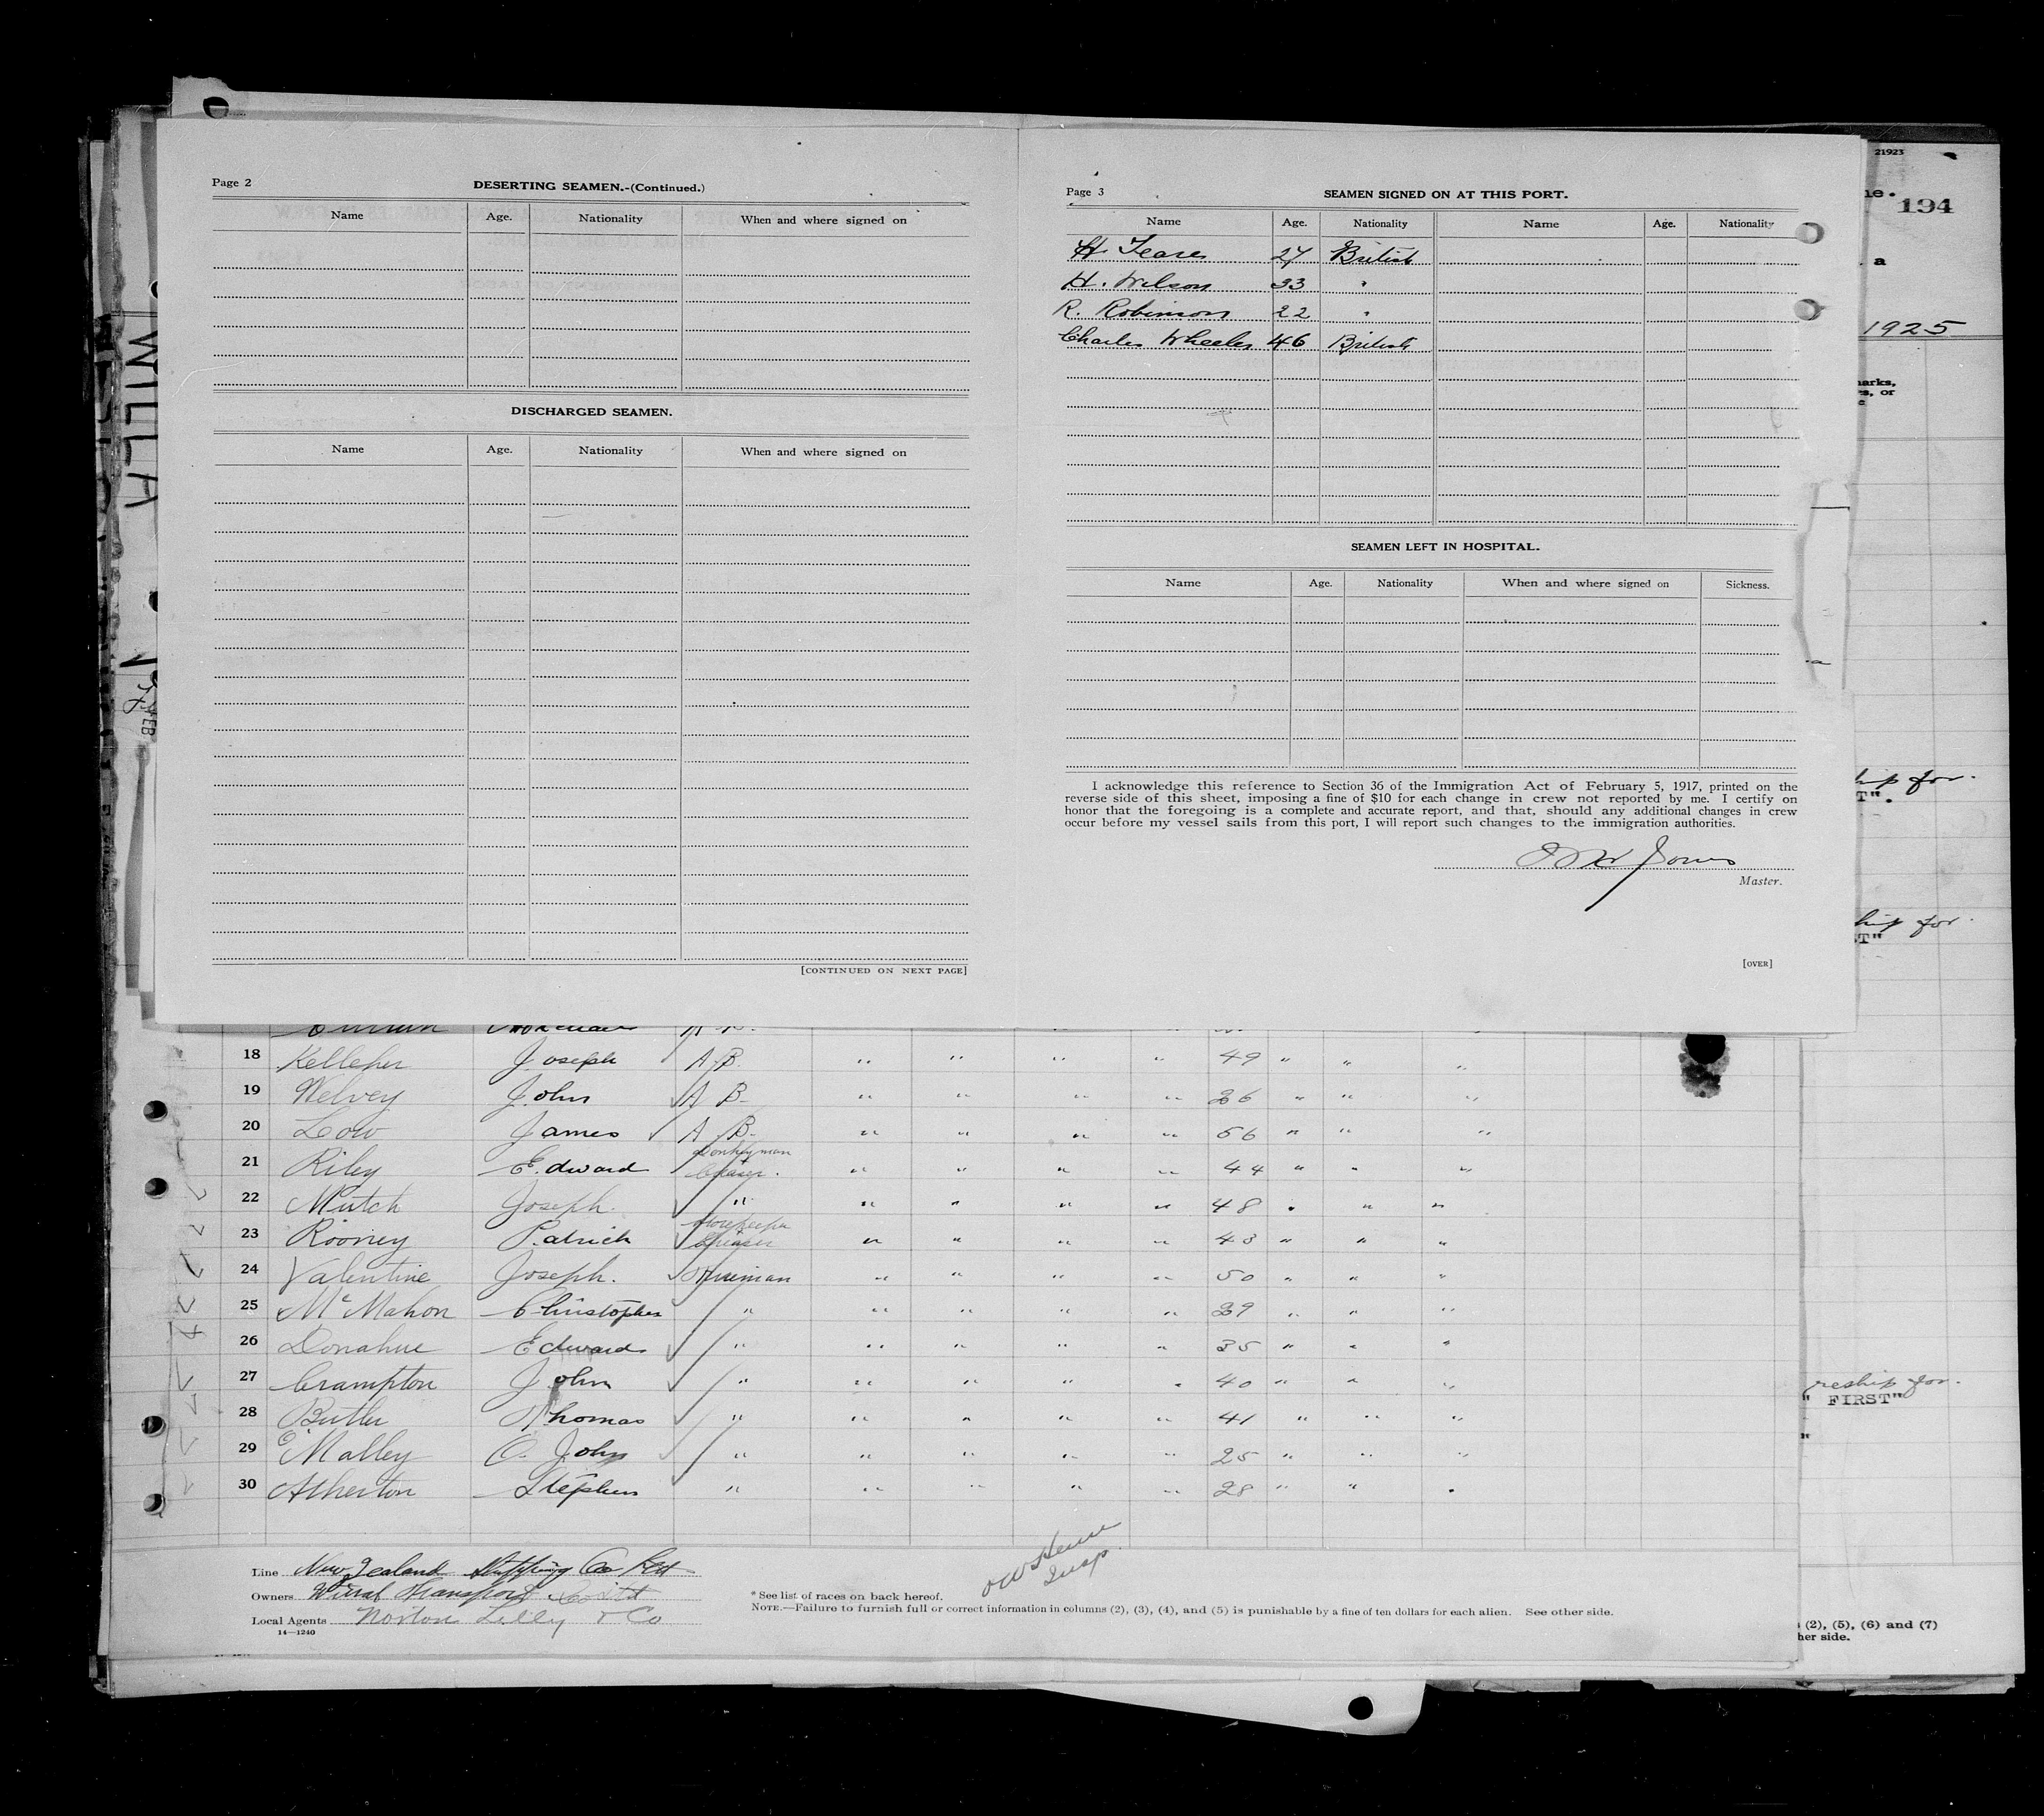 Page 2
DESERTING SEAMEN.-(Continued.)
Name Age. Nationality When and where signed on
DISCHARGED SEAMEN.
Name Age. Nationality When and where signed on
[CONTINUED ON NEXT PAGE]
Page 3
SEAMEN SIGNED ON AT THIS PORT.
Name Age. Nationality Name Age. Nationality
H. Teare 27 British
H. Wilson 33 "
R. Robinson 22 "
Charles Wheeler 46 British
SEAMEN LEFT IN HOSPITAL.
Name Age. Nationality When and where signed on Sickness.
I acknowledge this reference to Section 36 of the Immigration Act of February 5, 1917, printed on the
reverse side of this sheet, imposing a fine of $10 for each change in crew not reported by me. I certify on
honor that the foregoing is a complete and accurate report, and that, should any additional changes in crew
occur before my vessel sails from this port, I will report such changes to the immigration authorities.
Jones
Master.
[OVER]
21923
194
a
1925
marks,
or
hip for
T".
hip for
ST"
reship for
" FIRST"
"
(2), (5), (6) and (7)
her side.
WILLA
FEB
18 Kelleher Joseph A B. " " " " 49 " " "
19 Welvey John A B. " " " " 36 " " "
20 Low James A B. " " " " 56 " " "
21 Riley Edward Donkeyman Greaser. " " " " 44 " " "
22 Mutch Joseph. " " " " " 48 " " "
23 Rooney Patrick Storekeeper Greaser " " " " 43 " " "
24 Valentine Joseph. Fireman " " " " 50 " " "
25 McMahon Christopher " " " " " 39 " " "
26 Donahue Edward " " " " " 35 " " "
27 Crampton John " " " " " 40 " " "
28 Butler Thomas " " " " " 41 " " "
29 O'Malley O. John " " " " " 25 " " "
30 Atherton Stephen " " " " " 28 " " "
Line New Zealand Shipping Co Ltd
Owners Wirral Transport Co Ltd
Local Agents Norton Lilly & Co
14—1240
Insp.
* See list of races on back hereof.
NOTE.—Failure to furnish full or correct information in columns (2), (3), (4), and (5) is punishable by a fine of ten dollars for each alien. See other side.